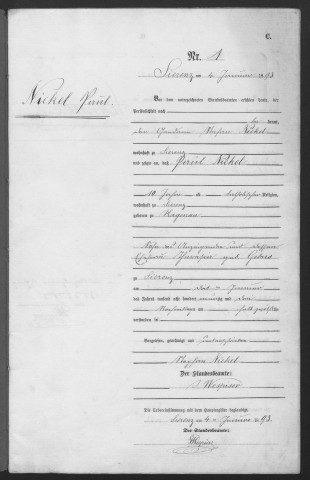 C.
Nr. 1.
Sierenz am 4. Januar 1893
Nickel Paul.
Vor dem unterzeichneten Standesbeamten erschien heute, der
Persönlichkeit nach
be kannt,
der Stephan Nickel
wohnhaft zu Sierenz
und zeigte an, daß Paul Nickel
10 Jahre alt, katholischer Religion,
wohnhaft zu Sierenz
geboren zu Hagenau
Sohn des Anzeigenden und dessen
Ehefrau
zu Sierenz
am Januar
des Jahres tausend acht hundert neunzig und drei
Nachmittags um halb zwölf Uhr
verstorben sei
Vorgelesen, genehmigt und unterschrieben
Stephan Nickel
Der Standesbeamte:
Die Uebereinstimmung mit dem Hauptregister beglaubigt
Sierenz am 4. Januar 1893.
Der Standesbeamte: